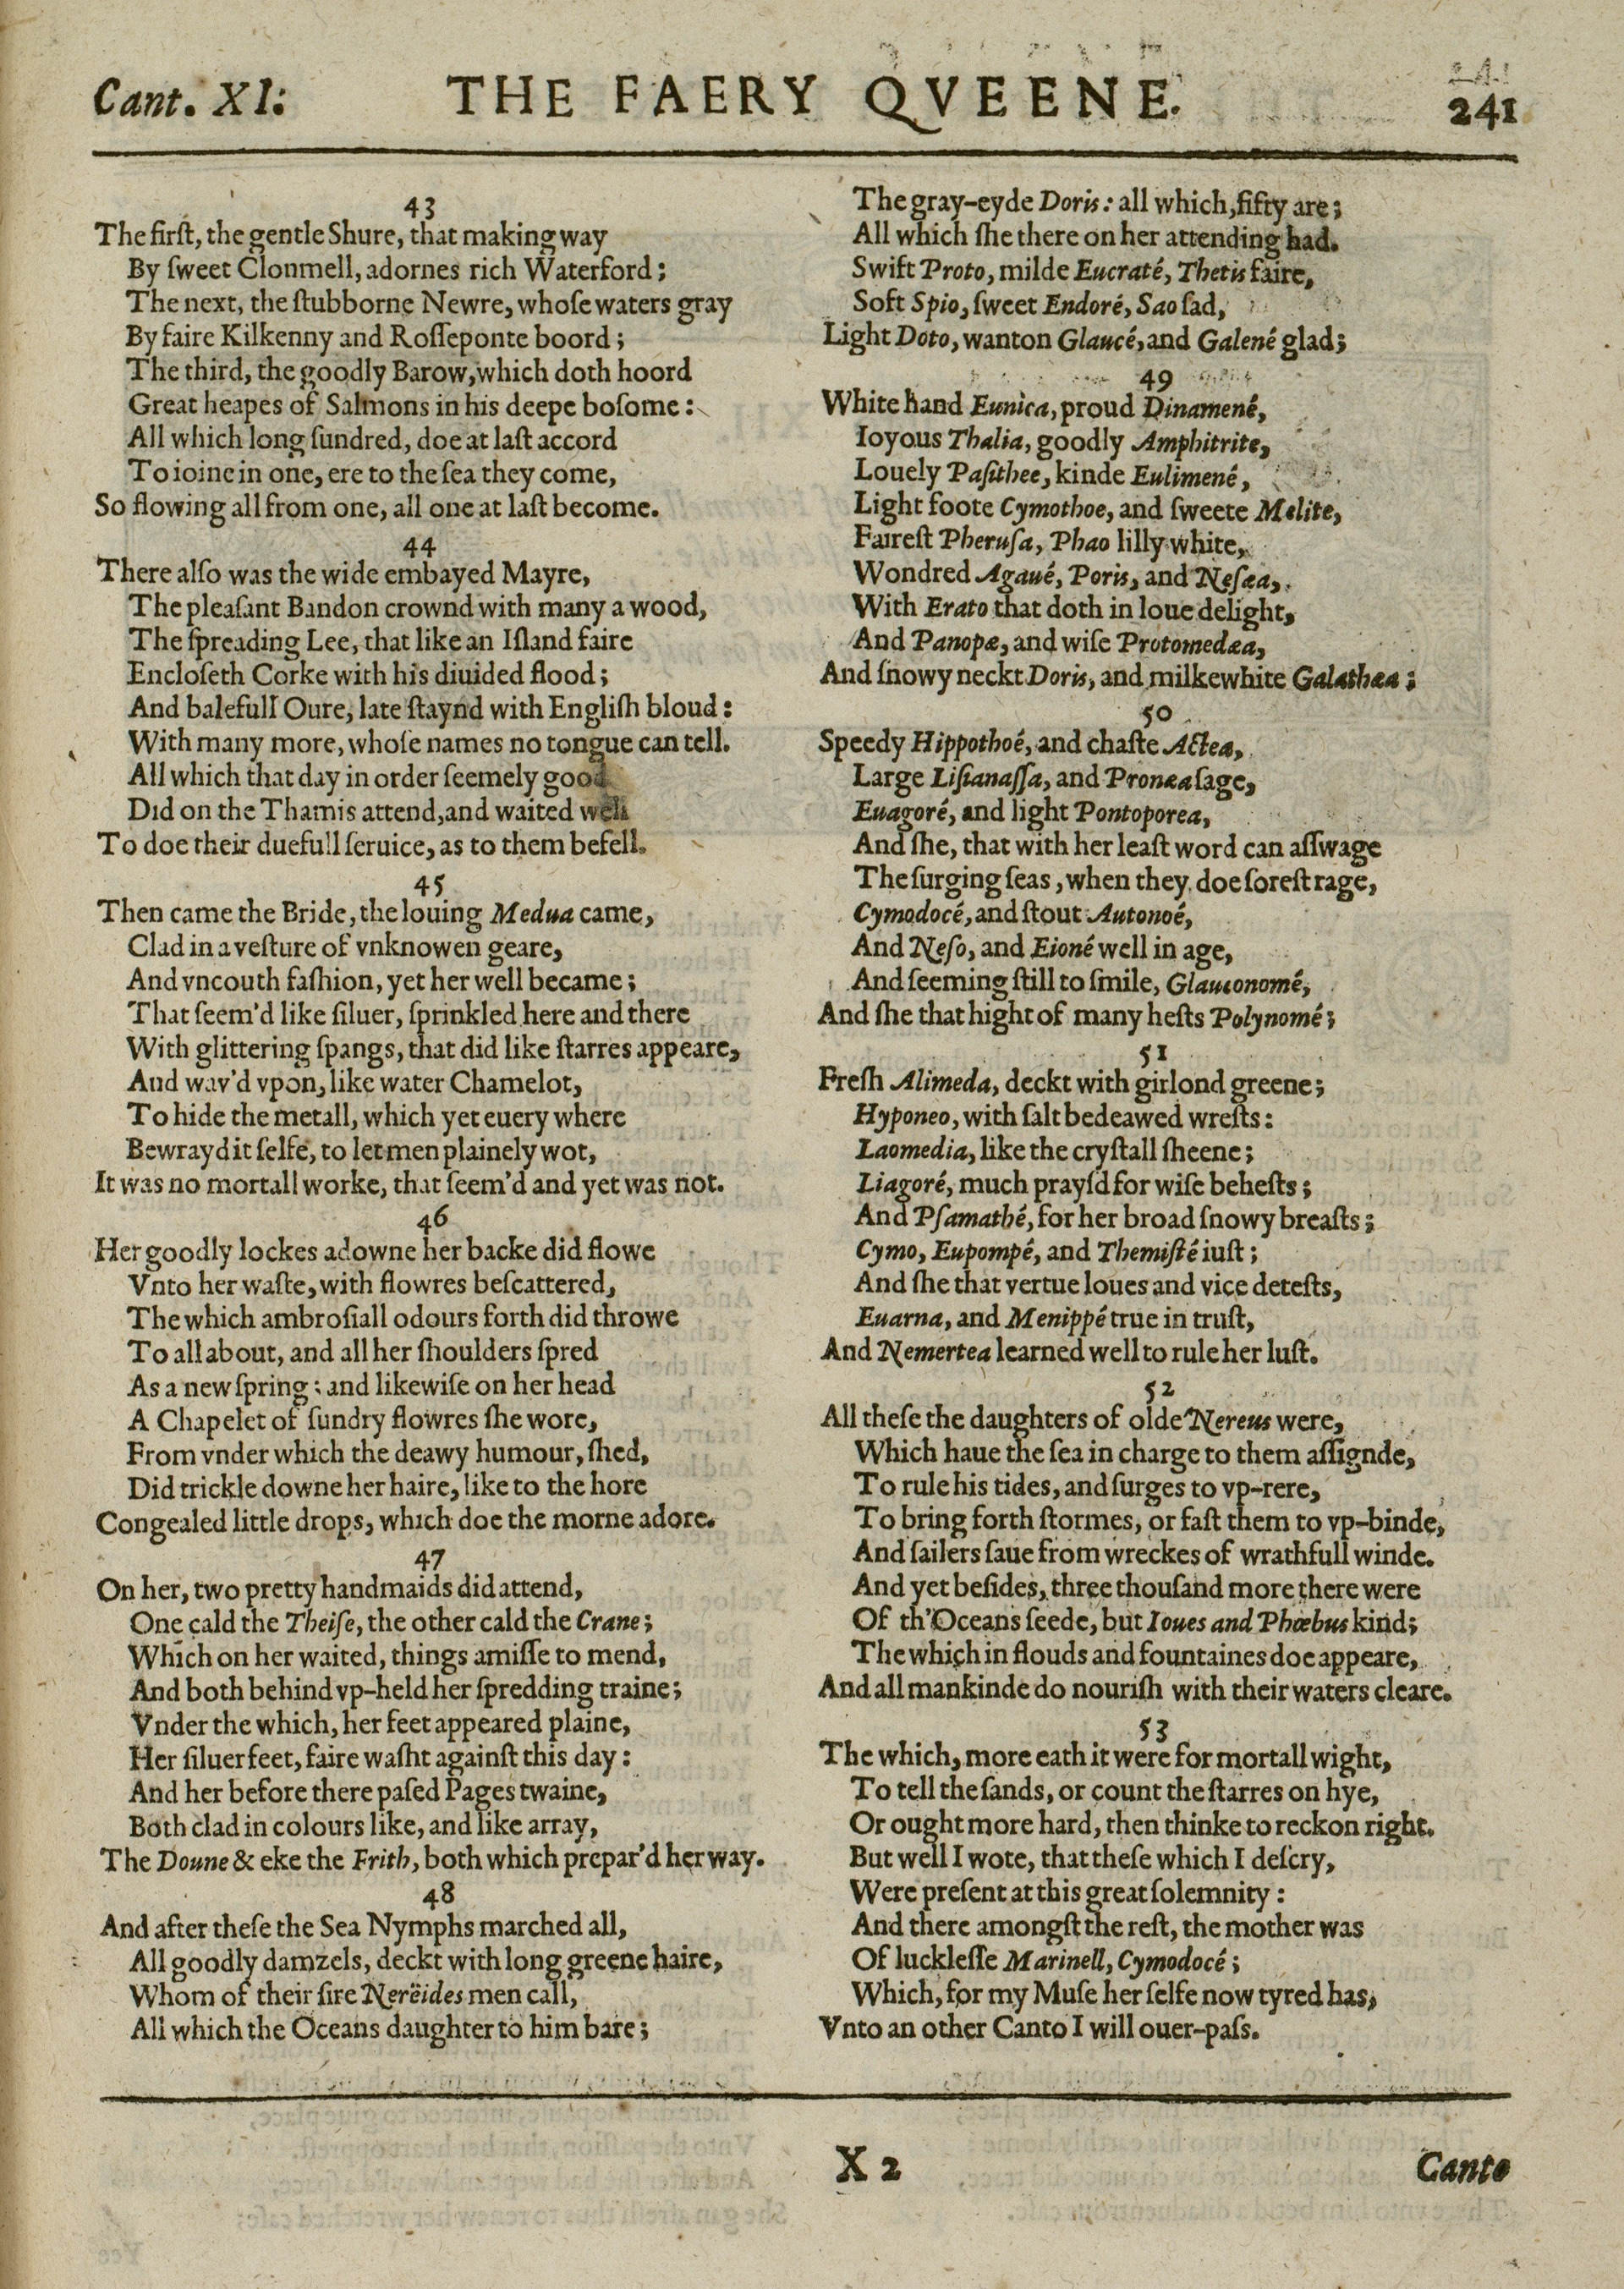 Cant. XI: THE FAERY QVEENE. 241
43
The firſt, the gentle Shure, that making way
By ſweet Clonmell, adornes rich Waterford;
The next, the ſtubborne Newre, whoſe waters gray
By faire Kilkenny and Roſſeponte boord;
The third, the goodly Barow, which doth hoord
Great heapes of Salmons in his deepe boſome:
All which long ſundred, doe at laſt accord
To ioine in one, ere to the ſea they come,
So flowing all from one, all one at laſt become.
44
There alſo was the wide embayed Mayre,
The pleaſant Bandon crownd with many a wood,
The ſpreading Lee, that like an Iſland faire
Encloſeth Corke with his diuided flood;
And balefull Oure, late ſtaynd with Engliſh bloud:
With many more, whoſe names no tongue can tell.
All which that day in order ſeemely good
Did on the Thamis attend, and waited well
To doe their duefull ſeruice, as to them befell.
45
Then came the Bride, the louing Medua came,
Clad in a veſture of vnknowen geare,
And vncouth faſhion, yet her well became;
That ſeem'd like ſiluer, ſprinkled here and there
With glittering ſpangs, that did like ſtarres appeare,
And wav'd vpon, like water Chamelot,
To hide the metall, which yet euery where
Bewrayd it ſelfe, to let men plainely wot,
It was no mortall worke, that ſeem'd and yet was not.
46
Her goodly lockes adowne her backe did flowe
Vnto her waſte, with flowres beſcattered,
The which ambroſiall odours forth did throwe
To all about, and all her ſhoulders ſpred
As a new ſpring; and likewiſe on her head
A Chapelet of ſundry flowres ſhe wore,
From vnder which the deawy humour, ſhed,
Did trickle downe her haire, like to the hore
Congealed little drops, which doe the morne adore.
47
On her, two pretty handmaids did attend,
One cald the Theiſe, the other cald the Crane;
Which on her waited, things amiſſe to mend,
And both behind vp-held her ſpredding traine;
Vnder the which, her feet appeared plaine,
Her ſiluer feet, faire waſht againſt this day:
And her before there paſed Pages twaine,
Both clad in colours like, and like array,
The Doune & eke the Frith, both which prepar'd her way.
48
And after theſe the Sea Nymphs marched all,
All goodly damzels, deckt with long greene haire,
Whom of their ſire Nerëides men call,
All which the Oceans daughter to him bare;
The gray-eyde Doris: all which, fifty are;
All which ſhe there on her attending had.
Swift Proto, milde Eucraté, Thetis faire,
Soft Spio, ſweet Endoré, Sao ſad,
Light Doto, wanton Glaucé, and Galené glad;
49
White hand Eunica, proud Dinamené,
Ioyous Thalia, goodly Amphitrite,
Louely Paſithee, kinde Eulimené,
Light foote Cymothoe, and ſweete Melite,
Faireſt Pheruſa, Phao lilly white,
Wondred Agaué, Poris, and Neſæa,
With Erato that doth in loue delight,
And Panopæ, and wiſe Protomedæa,
And ſnowy neckt Doris, and milkewhite Galathæa;
50
Speedy Hippothoé, and chaſte Actea,
Large Liſianaſſa, and Pronæa ſage,
Euagoré, and light Pontoporea,
And ſhe, that with her leaſt word can aſſwage
The ſurging ſeas, when they doe ſoreſt rage,
Cymodocé, and ſtout Autonoé,
And Neſo, and Eioné well in age,
And ſeeming ſtill to ſmile, Glauconomé,
And ſhe that hight of many heſts Polynomé;
51
Freſh Alimeda, deckt with girlond greene;
Hyponeo, with ſalt bedeawed wreſts:
Laomedia, like the cryſtall ſheene;
Liagoré, much prayſd for wiſe beheſts;
And Pſamathé, for her broad ſnowy breaſts;
Cymo, Eupompé, and Themiſté iuſt;
And ſhe that vertue loues and vice deteſts,
Euarna, and Menippé true in truſt,
And Nemertea learned well to rule her luſt.
52
All theſe the daughters of olde Nereus were,
Which haue the ſea in charge to them aſſignde,
To rule his tides, and ſurges to vp-rere,
To bring forth ſtormes, or faſt them to vp-binde,
And ſailers ſaue from wreckes of wrathfull winde.
And yet beſides, three thouſand more there were
Of th'Oceans ſeede, but Ioues and Phœbus kind;
The which in flouds and fountaines doe appeare,
And all mankinde do nouriſh with their waters cleare.
53
The which, more eath it were for mortall wight,
To tell the ſands, or count the ſtarres on hye,
Or ought more hard, then thinke to reckon right.
But well I wote, that theſe which I deſcry,
Were preſent at this great ſolemnity:
And there amongſt the reſt, the mother was
Of luckleſſe Marinell, Cymodocé;
Which, for my Muſe her ſelfe now tyred has,
Vnto an other Canto I will ouer-paſs.
X 2 Canto